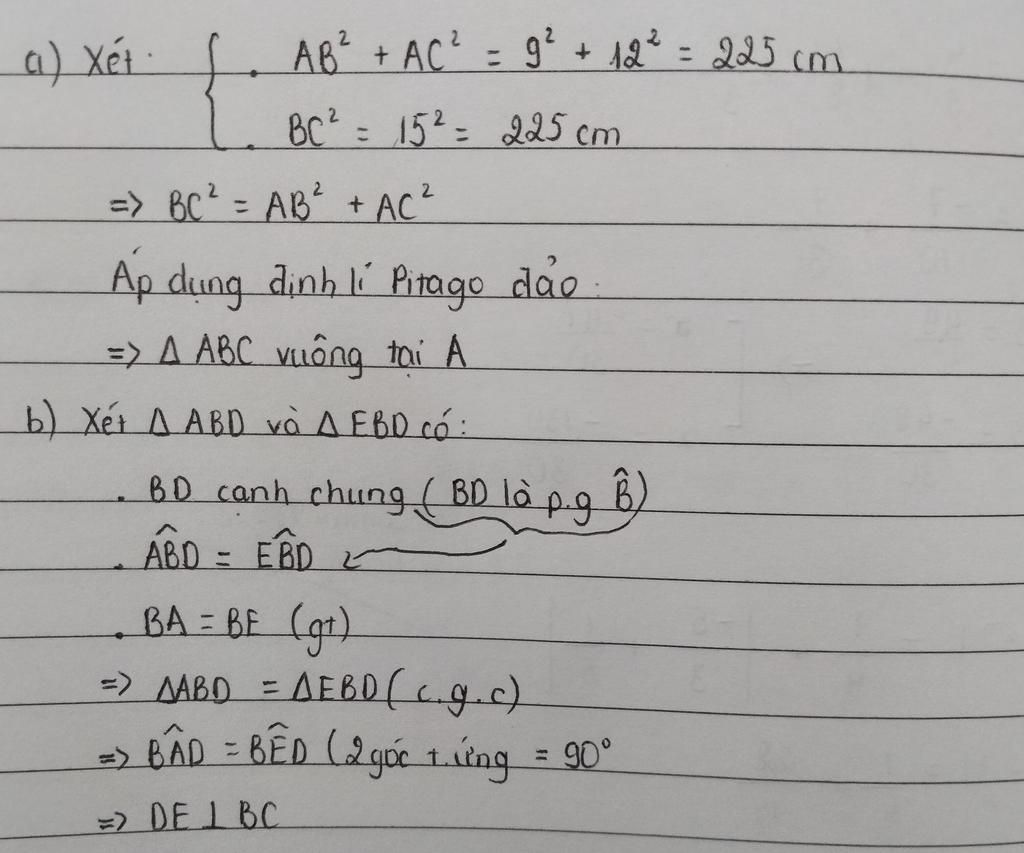 a) Xét: { . AB² + AC² = 9² + 12² = 225 cm
. BC² = 15² = 225 cm
=> BC² = AB² + AC²
Áp dụng định lí Pitago đảo:
=> Δ ABC vuông tại A
b) Xét Δ ABD và Δ EBD có:
. BD cạnh chung (BD là p.g B̂)
. AB̂D = EB̂D
. BA = BE (gt)
=> ΔABD = ΔEBD (c.g.c)
=> BÂD = BÊD (2 góc t.ứng = 90°
=> DE ⊥ BC